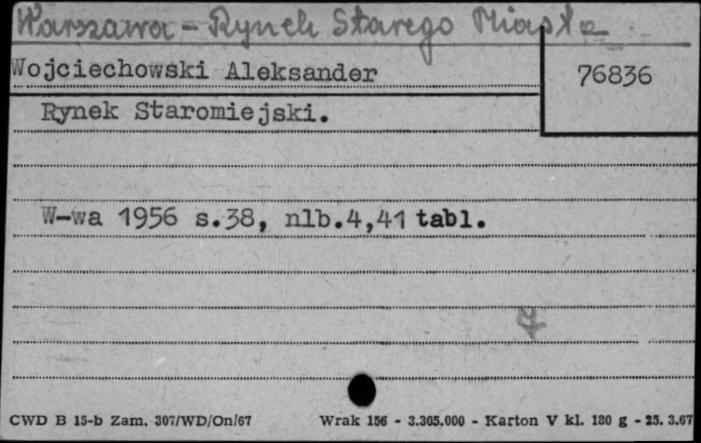 Warszawa - Rynek Starego Miasta
Wojciechowski Aleksander
76836
Rynek Staromiejski.
W-wa 1956 s.38, nlb.4,41 tabl.
7
CWD B 15-b Zam. 307/WD/On/67 Wrak 156 - 3.305.000 - Karton V kl. 180 g - 25. 3.67